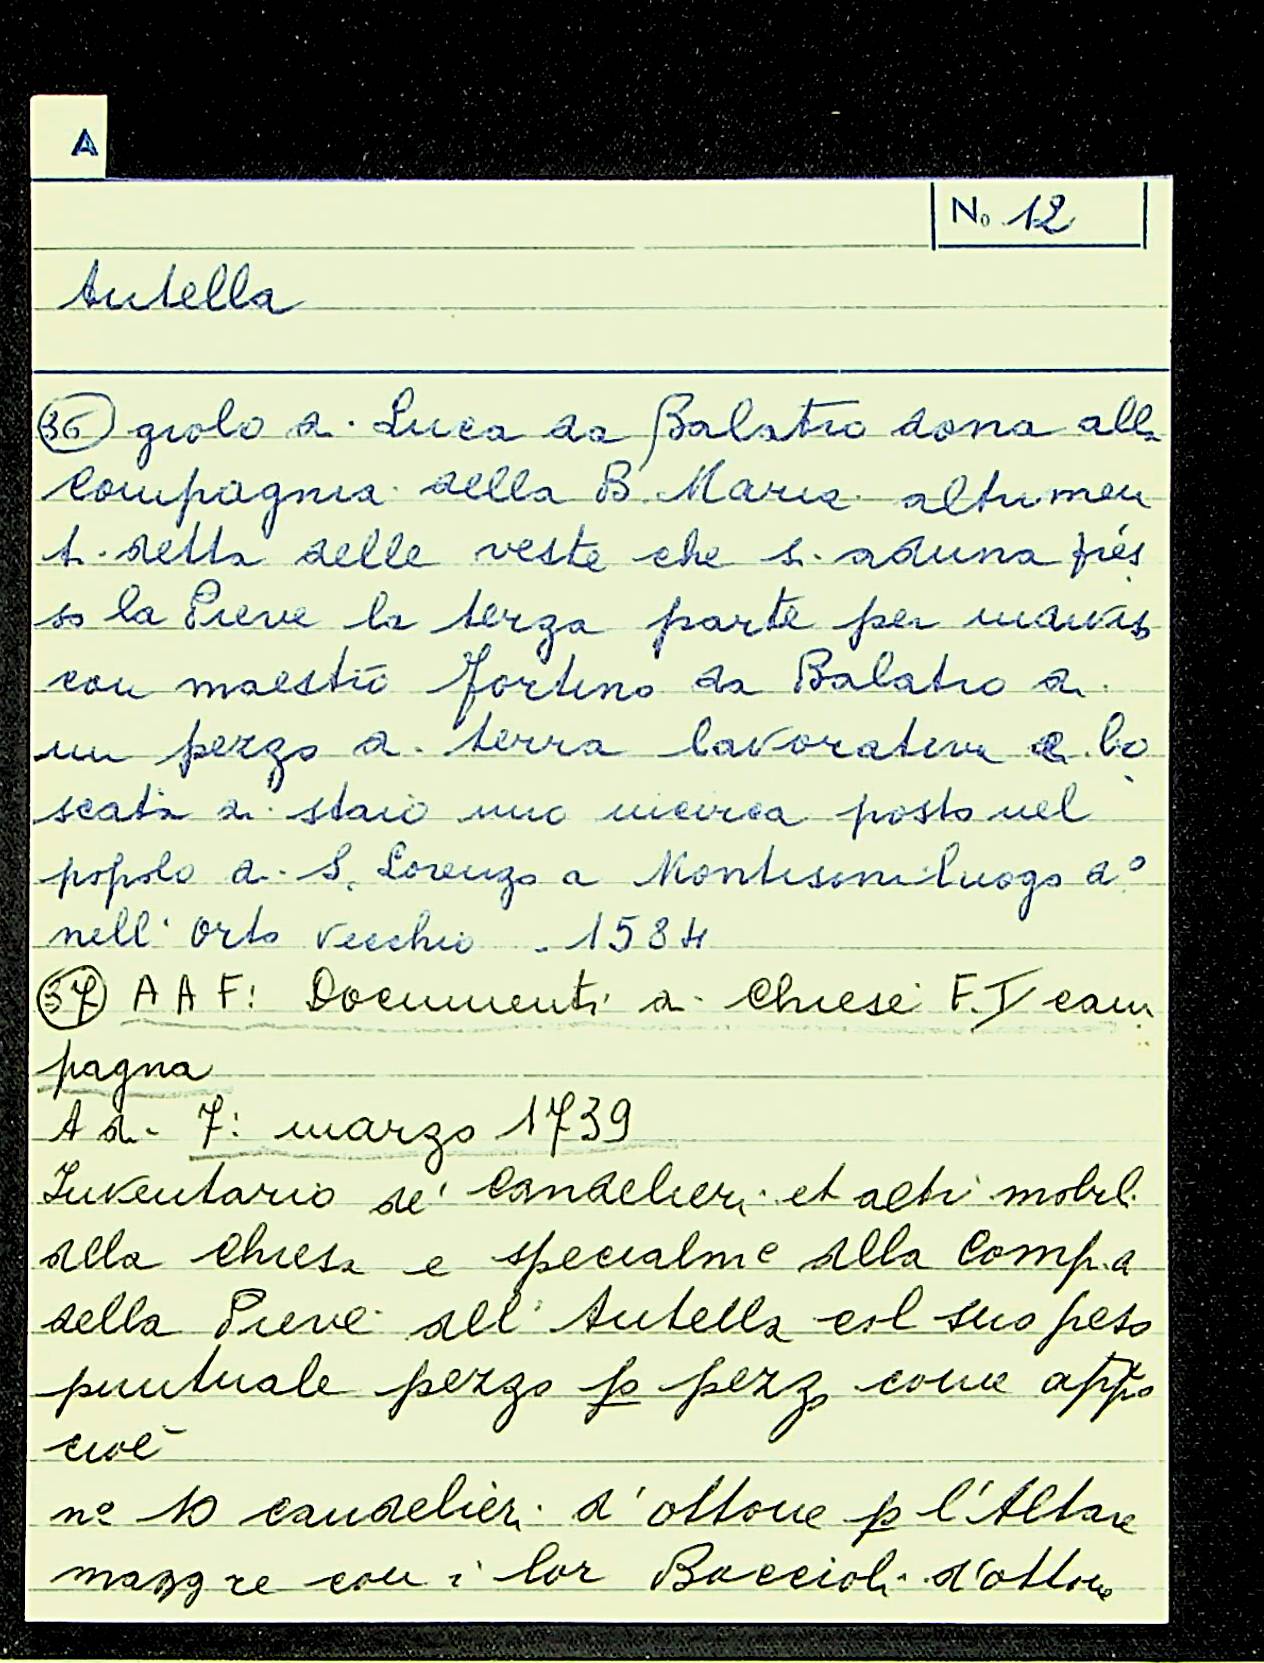 A
No 12
Antella
36 giolo di Luca da Balatro dona alla
Compagnia della B. Maria altrimen
ti detta delle veste che si aduna pres
so la Pieve la terza parte per indiviso
con maestro Fortino da Balatro di
un pezzo di terra lavorativa e bo
scata di staio uno incirca posto nel
popolo di S. Lorenzo a Montisoni luogo do
nell'orto vecchio - 1584
37 A A F: Documenti di Chiese F.I cam
pagna
A di 7: marzo 1739
Inventario de' Candelieri et altri mobili
dlla Chiesa e specialme dlla Comp.a
della Pieve dell'Antella col suo peso
puntuale pezzo p pezzo come appo
cioè
no 10 candelieri d'ottone p l'Altare
maggre con i lor Boccioli d'ottone